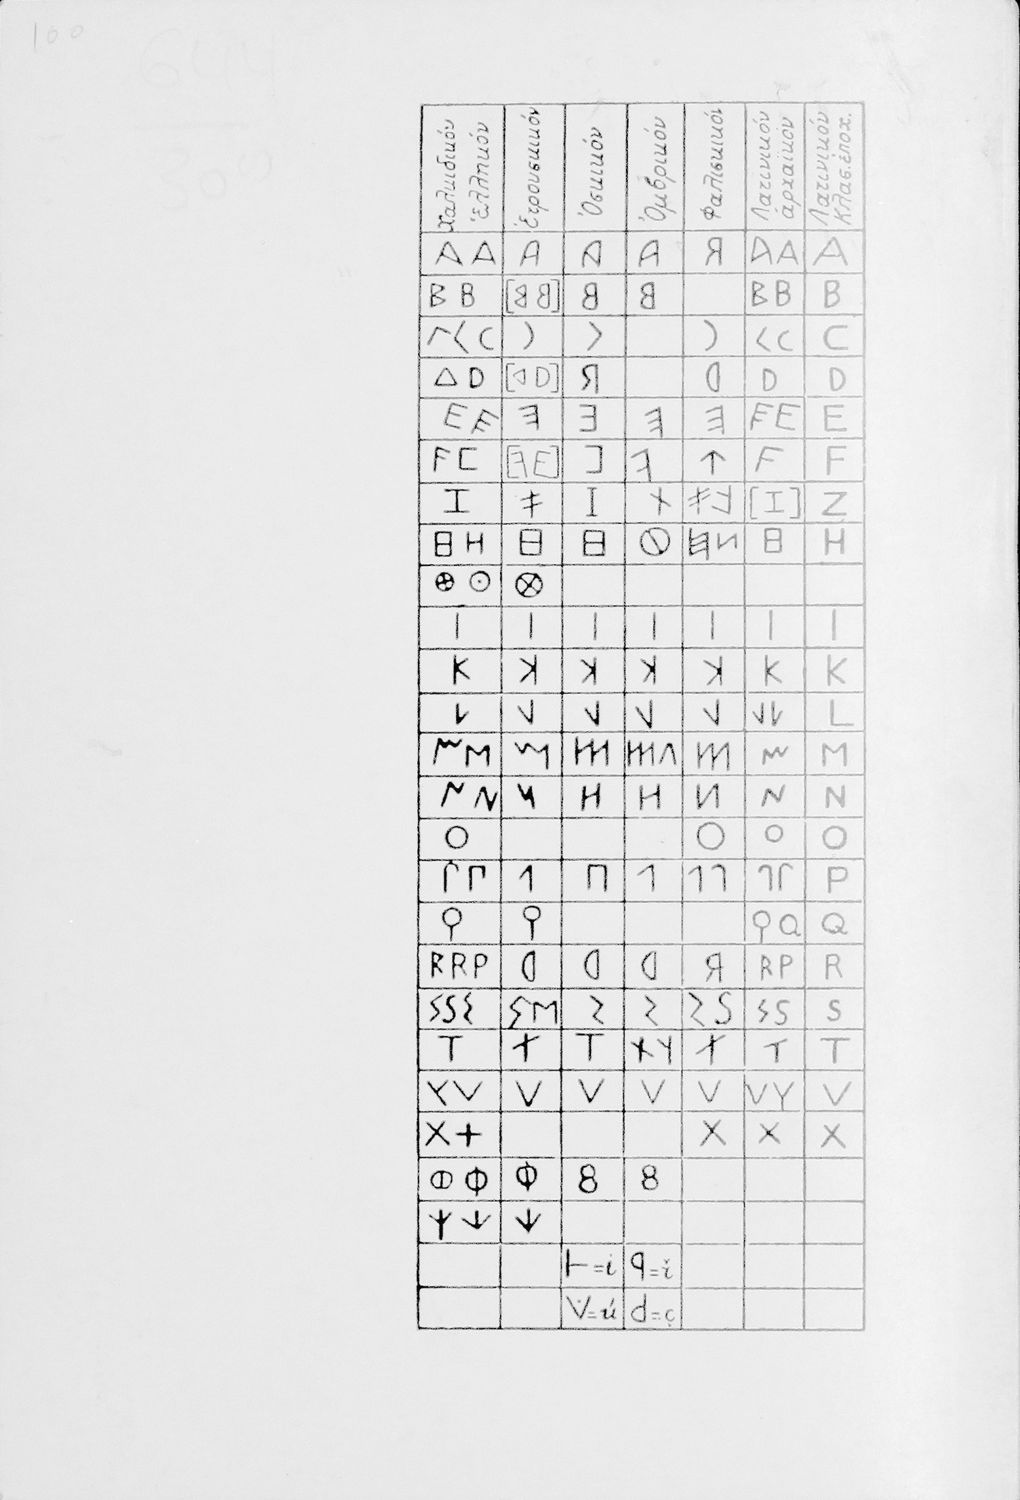 100
Χαλκιδικόν Ἑλληνικόν Ἐτρουσκικόν Ὀσκικόν Ὀμβρικόν Φαλισκικόν Λατινικόν ἀρχαϊκόν Λατινικόν Κλασ. ἐποχ.
A A A A A A A A A
B B [B B] B B B B B
Γ < C ) > ) < C C
Δ D [D D] Я D D D
E E E E E E F E E
F C [F E] ] F ↑ F F
I ‡ I [I] Z
H H
⊕ ⊙ ⊗
I I I I I I I
K K K K K K K
L
M M M
N N И H H И N N
O O O O
Γ Π 1 Π 1 1 1 P
Ϙ Ϙ Ϙ Q Q
R R P D D D Я R P R
S S Σ Σ M S S S S
T T T T
Y V V V V V V Y V
X + X X X
Φ Φ Φ 8 8
Ψ ↓ ↓
Ⱶ = í q = ř
V̇ = ú d = ç